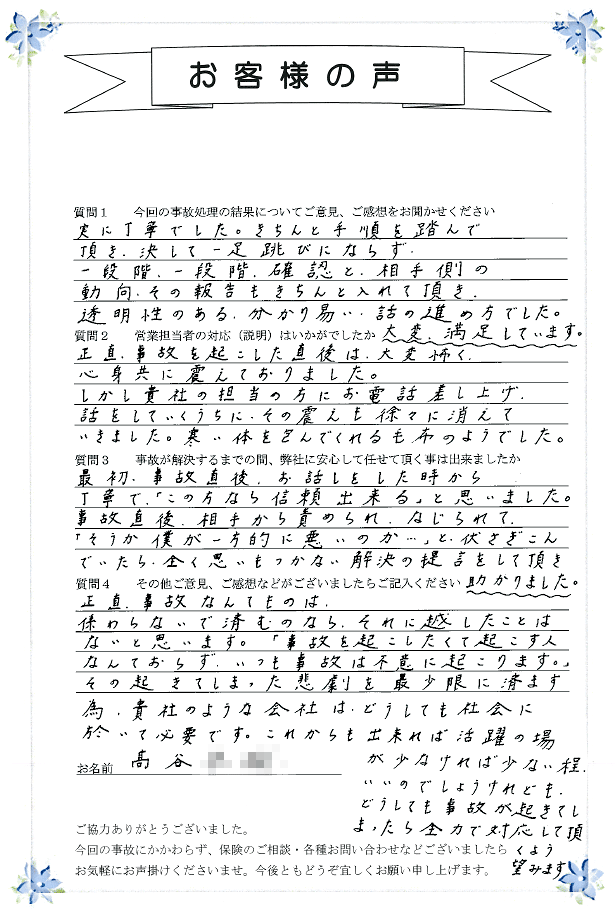 お客様の声
質問1 今回の事故処理の結果についてご意見、ご感想をお聞かせください
実に丁寧でした。きちんと手順を踏んで
頂き、決して一足跳びにならず、
一段階、一段階、確認と、相手側の
動向、その報告もきちんと入れて頂き、
透明性のある、分かり易い、話の進め方でした。
大変、満足しています。
質問2 営業担当者の対応(説明)はいかがでしたか
正直、事故を起こした直後は、大変怖く、
心身共に震えておりました。
しかし貴社の担当の方にお電話差し上げ、
話をしていくうちに、その震えも徐々に消えて
いきました。寒い体を包んでくれる毛布のようでした。
質問3 事故が解決するまでの間、弊社に安心して任せて頂く事は出来ましたか
最初、事故直後、お話しをした時から
丁寧で、「この方なら信頼出来る」と思いました。
事故直後、相手から責められ、なじられて、
「そうか僕が一方的に悪いのか…」と、伏さぎこん
でいたら、全く思いもつかない解決の提言をして頂き
助かりました。
質問4 その他ご意見、ご感想などがございましたらご記入ください
正直、事故なんてものは、
係わらないで済むのなら、それに越したことは
ないと思います。「事故を起こしたくて起こす人
なんておらず、いつも事故は不意に起こります。」
その起きてしまった悲劇を最少限に済ます
為、貴社のような会社は、どうしても社会に
於いて必要です。これからも出来れば活躍の場
が少なければ少ない程、
いいのでしょうけれども、
どうしても事故が起きてし
まったら全力で対応して頂
くよう
望みます
お名前 髙谷
ご協力ありがとうございました。
今回の事故にかかわらず、保険のご相談・各種お問い合わせなどございましたら
お気軽にお声掛けくださいませ。今後ともどうぞ宜しくお願い申し上げます。